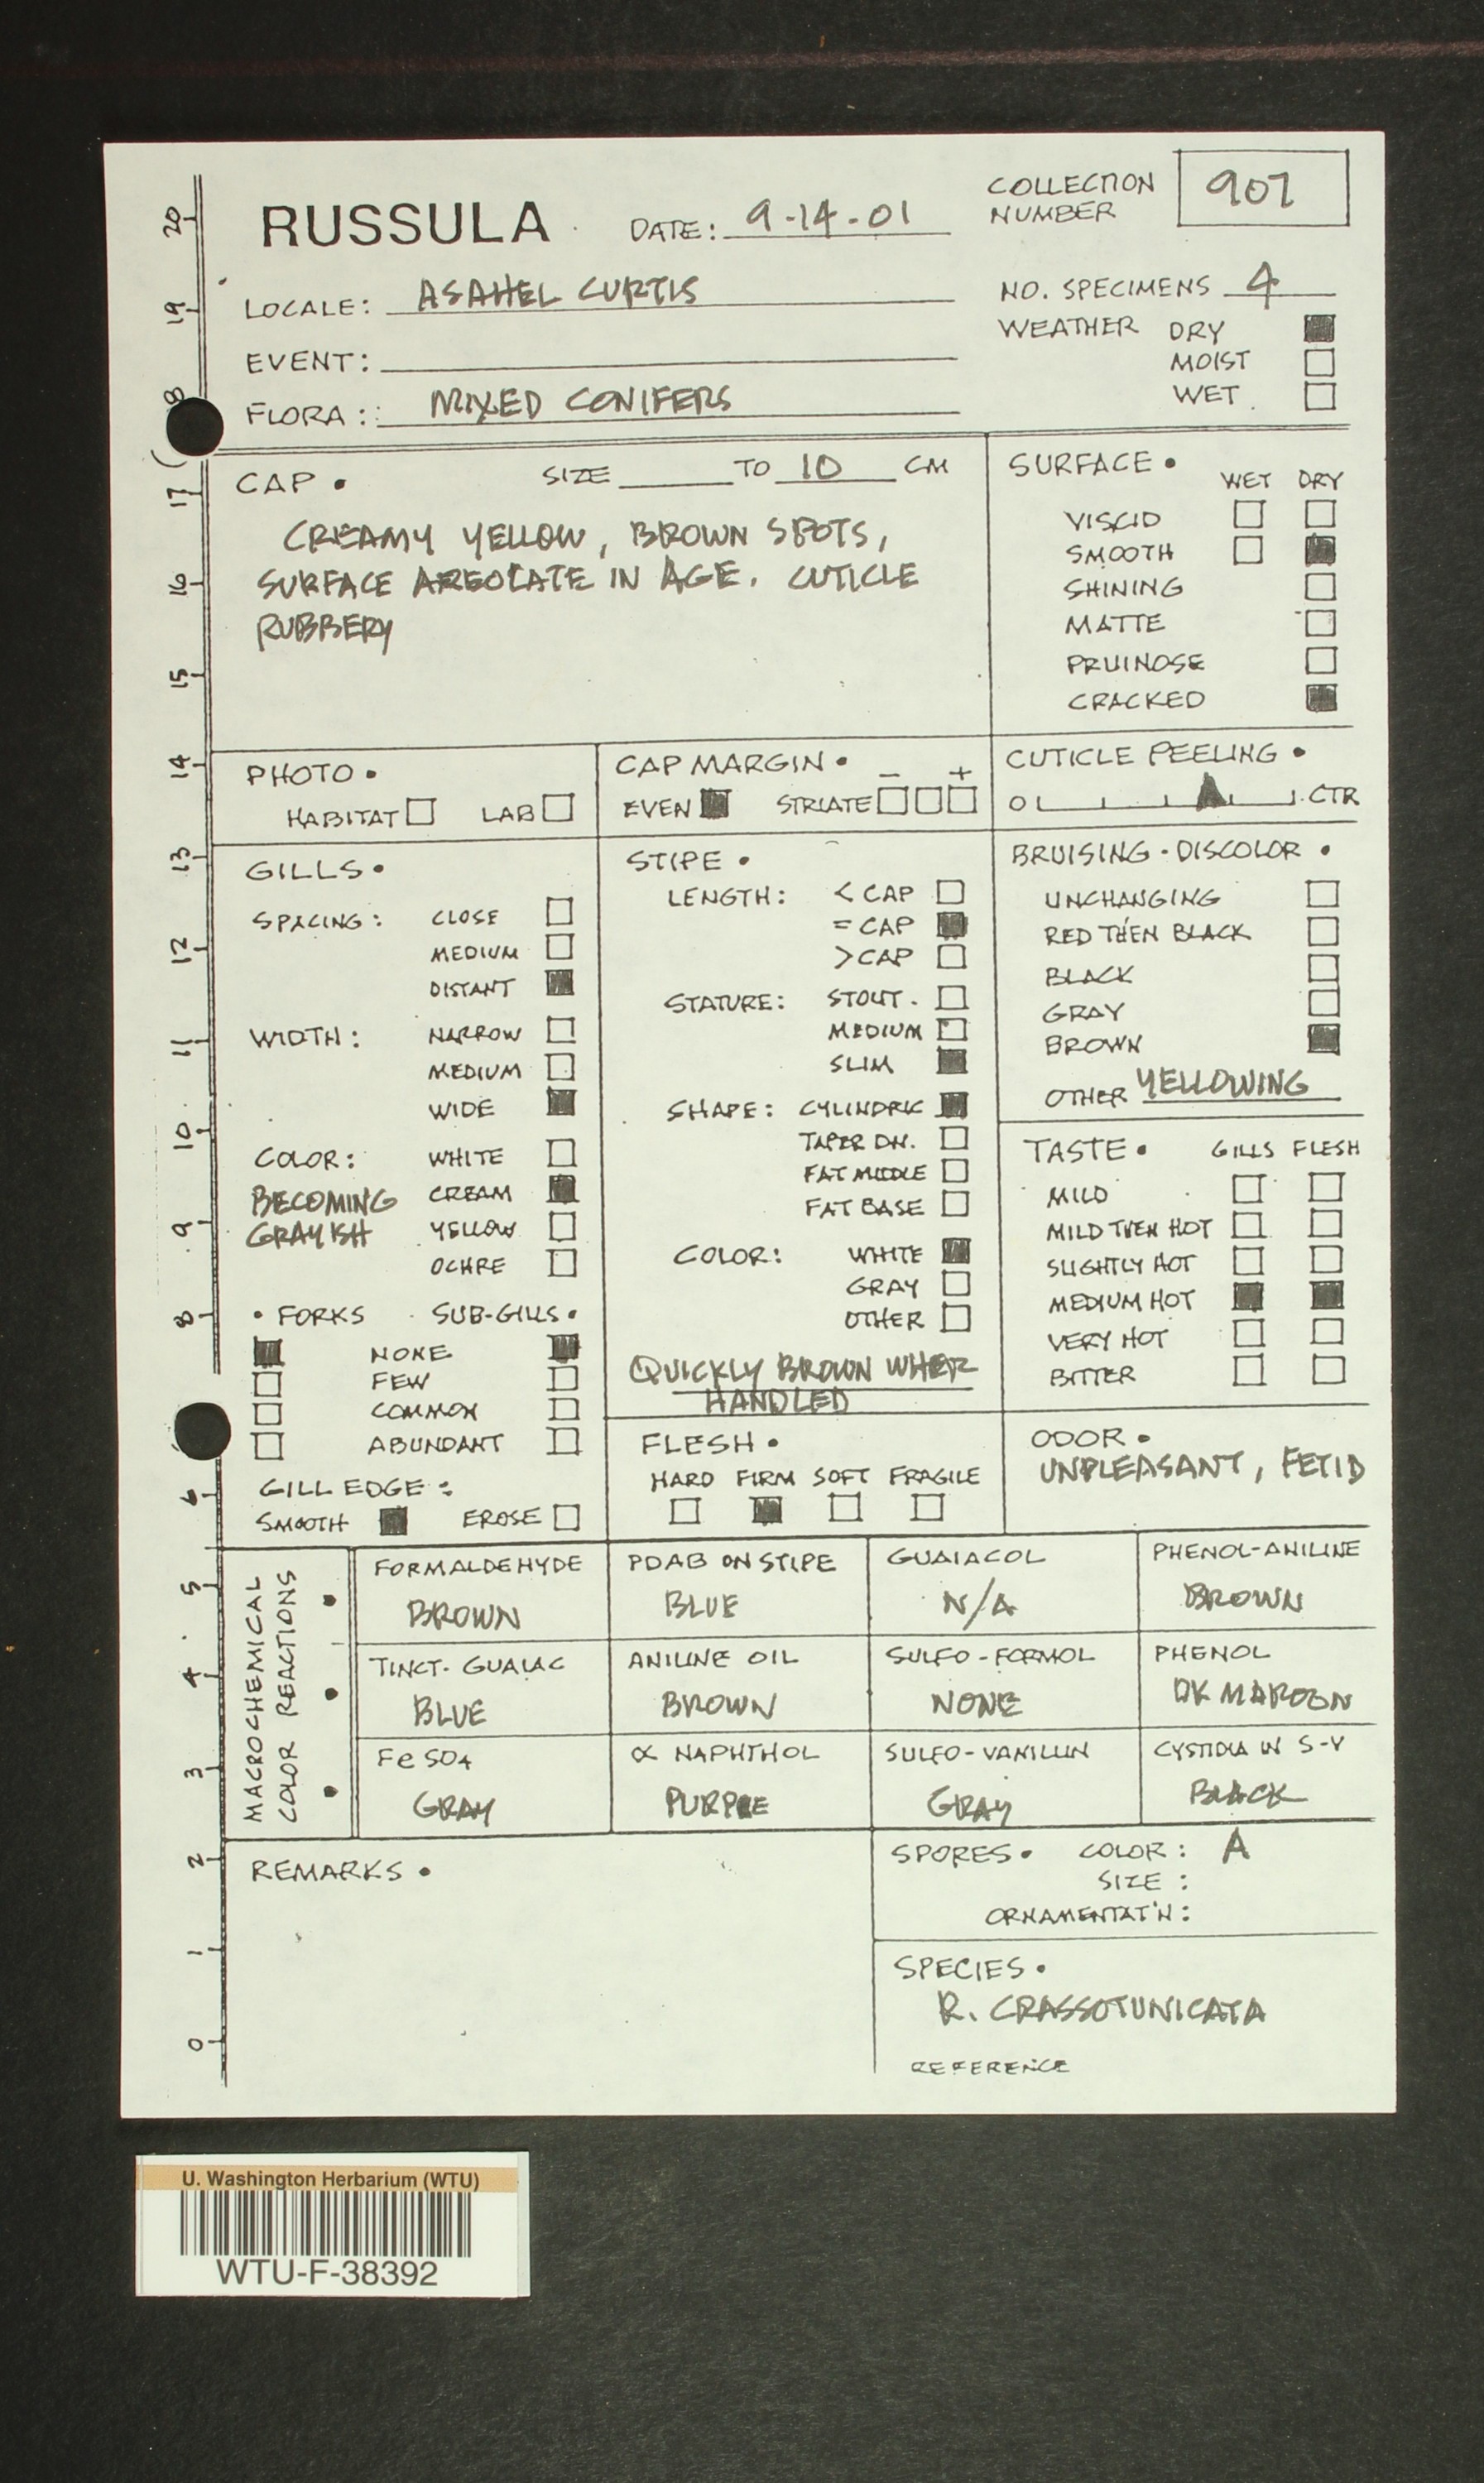 RUSSULA DATE: 9-14-01 COLLECTION NUMBER 907
LOCALE: ASAHEL CURTIS NO. SPECIMENS 4
WEATHER DRY
EVENT: MOIST
FLORA: MIXED CONIFERS WET
CAP • SIZE TO 10 CM
CREAMY YELLOW, BROWN SPOTS,
SURFACE AREOLATE IN AGE. CUTICLE
RUBBERY
SURFACE •
WET DRY
VISCID
SMOOTH
SHINING
MATTE
PRUINOSE
CRACKED
PHOTO •
HABITAT LAB
CAP MARGIN • - +
EVEN STRIATE
CUTICLE PEELING •
0 CTR
GILLS •
SPACING: CLOSE
MEDIUM
DISTANT
WIDTH: NARROW
MEDIUM
WIDE
COLOR: WHITE
BECOMING CREAM
GRAYISH YELLOW
OCHRE
• FORKS SUB-GILLS •
NONE
FEW
COMMON
ABUNDANT
GILL EDGE:
SMOOTH EROSE
STIPE •
LENGTH: < CAP
= CAP
> CAP
STATURE: STOUT.
MEDIUM
SLIM
SHAPE: CYLINDRIC
TAPER DN.
FAT MIDDLE
FAT BASE
COLOR: WHITE
GRAY
OTHER
QUICKLY BROWN WHER
HANDLED
FLESH •
HARD FIRM SOFT FRAGILE
BRUISING - DISCOLOR •
UNCHANGING
RED THEN BLACK
BLACK
GRAY
BROWN
OTHER YELLOWING
TASTE • GILLS FLESH
MILD
MILD THEN HOT
SLIGHTLY HOT
MEDIUM HOT
VERY HOT
BITTER
ODOR •
UNPLEASANT, FETID
MACROCHEMICAL
COLOR REACTIONS
FORMALDEHYDE PDAB ON STIPE GUAIACOL PHENOL-ANILINE
BROWN BLUE N/A BROWN
TINCT. GUAIAC ANILINE OIL SULFO-FORMOL PHENOL
BLUE BROWN NONE DK MAROON
FeSO4 ∝ NAPHTHOL SULFO-VANILLIN CYSTIDIA IN S-V
GRAY PURPLE GRAY BLACK
REMARKS •
SPORES • COLOR: A
SIZE:
ORNAMENTAT'N:
SPECIES •
R. CRASSOTUNICATA
REFERENCE
20
19
8
17
16
15
14
13
12
11
10
9
8
6
5
4
3
2
1
0
U. Washington Herbarium (WTU)
WTU-F-38392